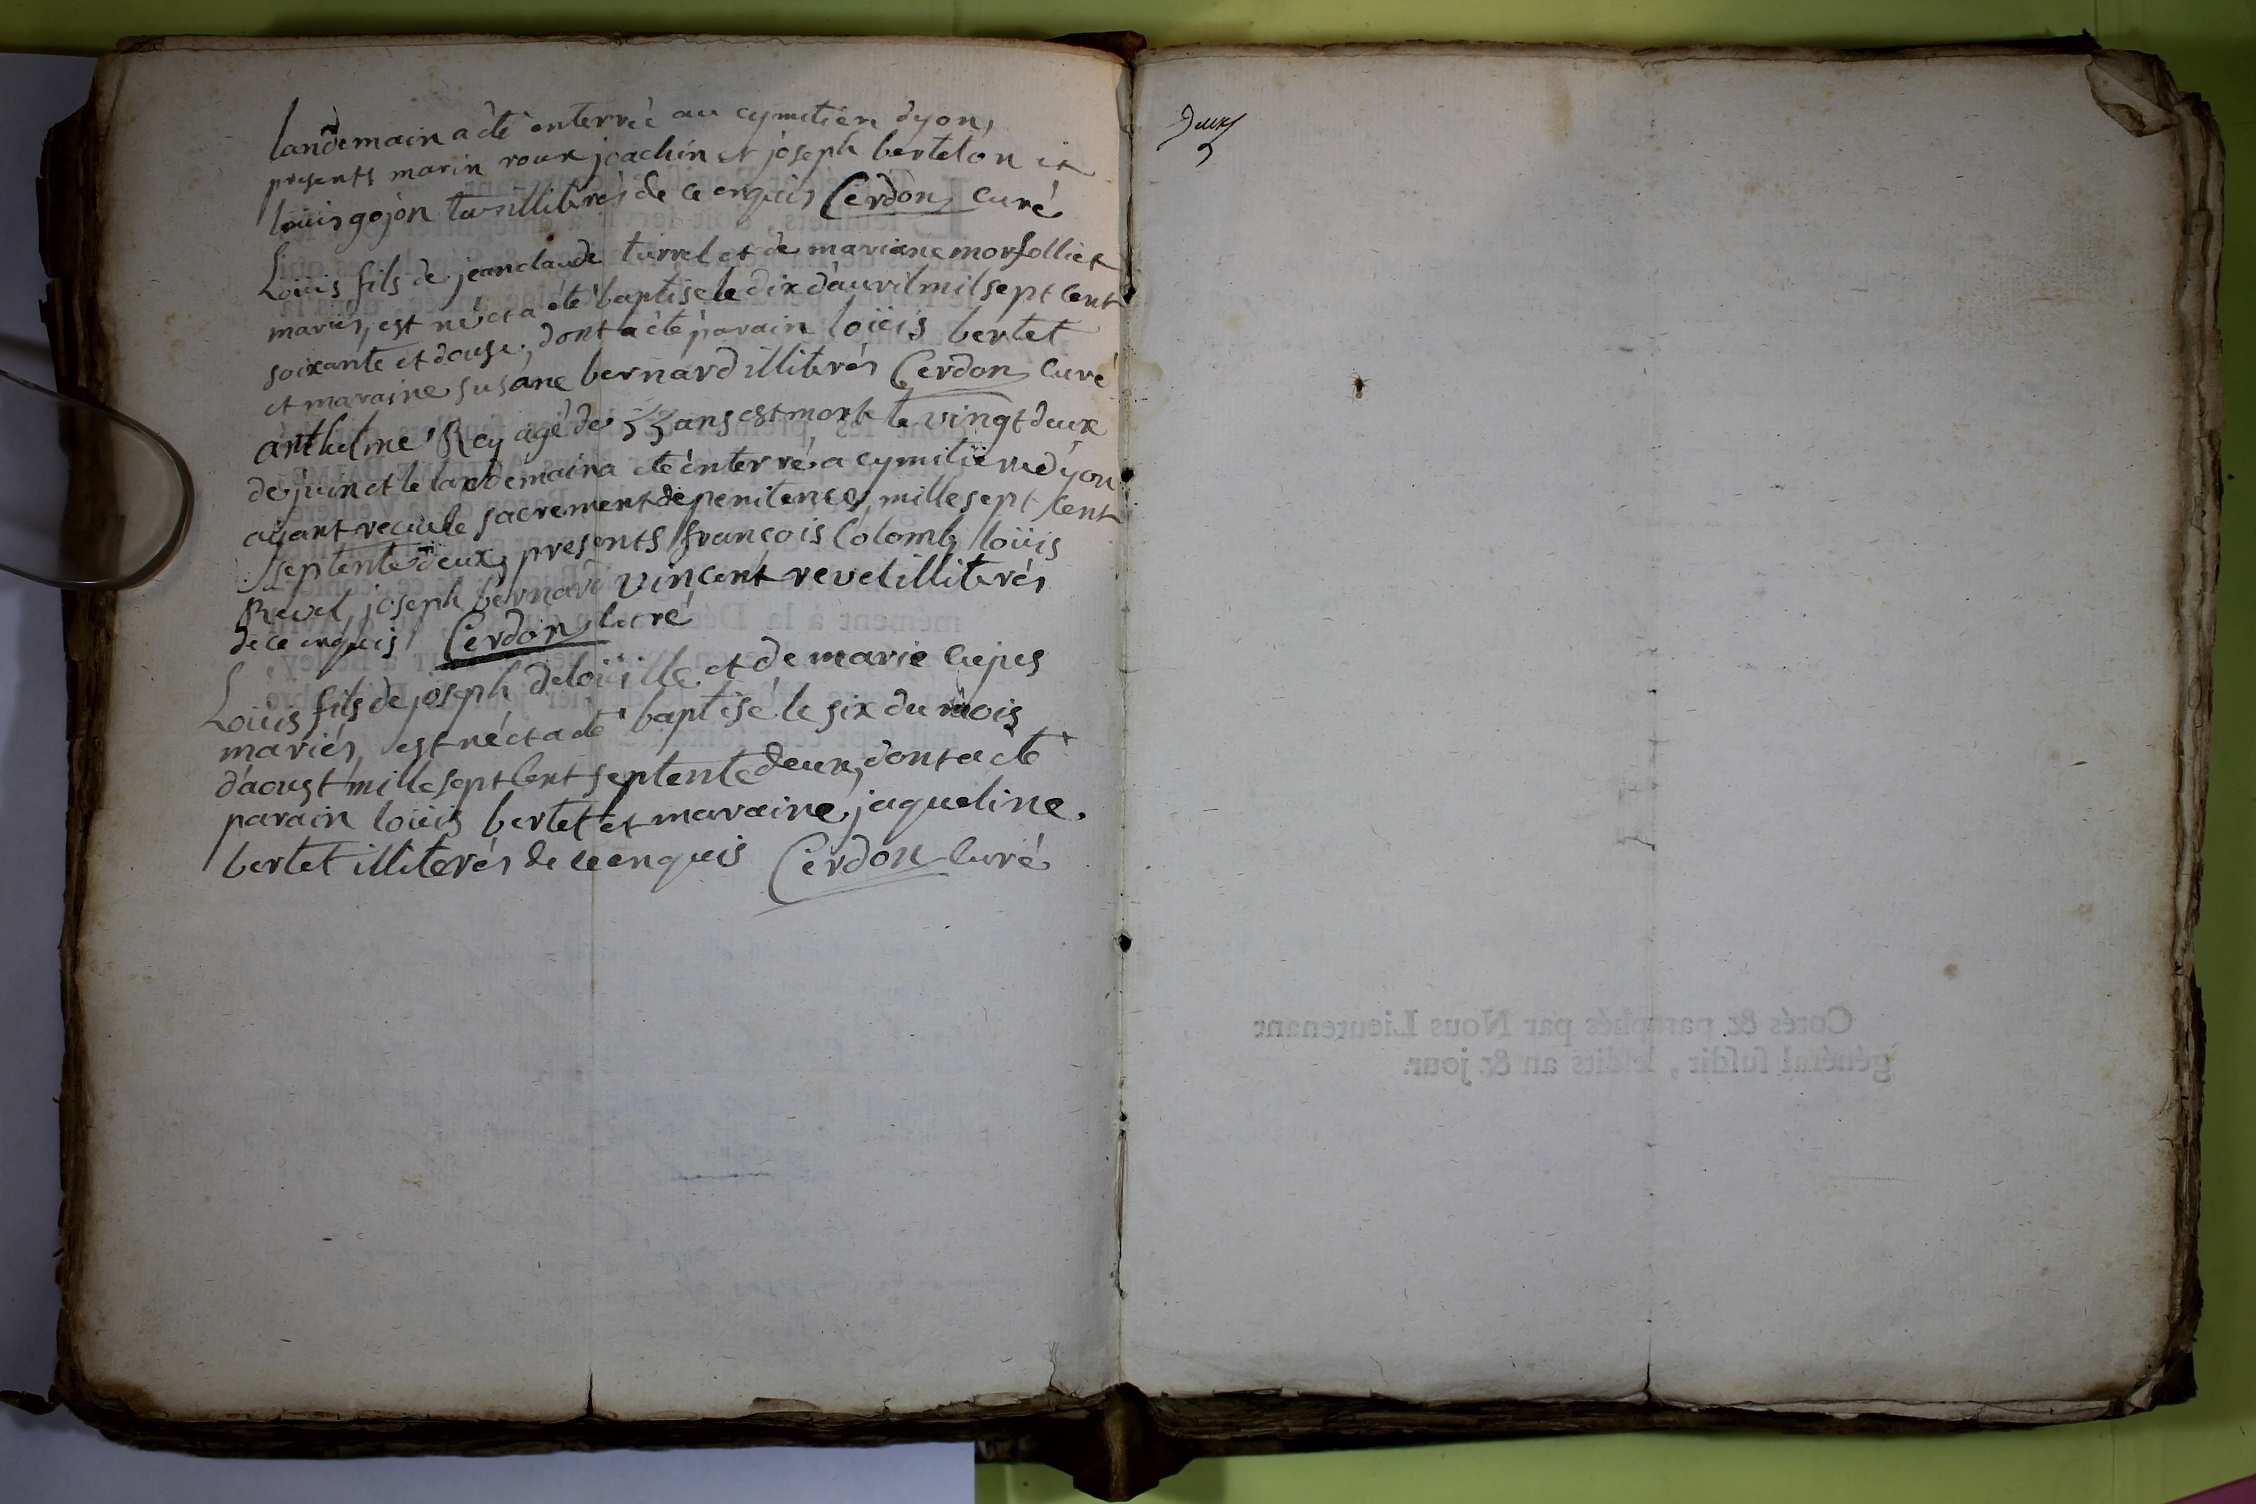 landemain a été enterrée au cymitiere dyon,
presents marin roux joachin et joseph bertelon et
loüis gojon tus illiterés de ce enquis Cerdon curé
Loüis fils de jeanclaude turrel et de mariane morfolliet
mariés, est né et a été baptisé le dix d'auvril mil sept cent
soixante et douse, dont a été parain loüis bertet
et maraine susane bernard illiterés Cerdon curé
anthelme Rey agé de 33 ans est mort le vingt deux
de juin et le landemain a eté enterré a cymitiere dyon
ayant recu le sacrement de penitence, mille sept cent
septente deux, presents françois Colomb loüis
Revel, joseph bernard vincent revel illiterés
de ce enquis Cerdon curé
Loüis fils de joseph deloüille et de marie
mariés, est né et a eté baptisé le six du mois
d'aoust mille sept cent septente deux, dont a eté
parain loüis bertet et maraine jaqueline
bertet illiterés de ce enquis Cerdon curé
Deux
Cotés & paraphés par Nous Lieutenant
général susdit, lesdits an & jour.